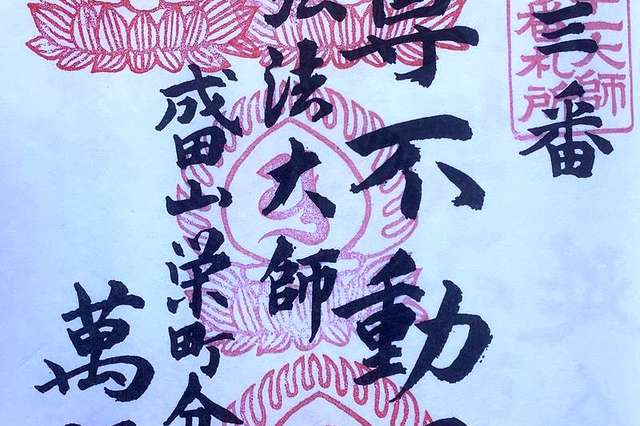 大師
札所
三番
尊不動
弘法大師
成田山栄町分
萬